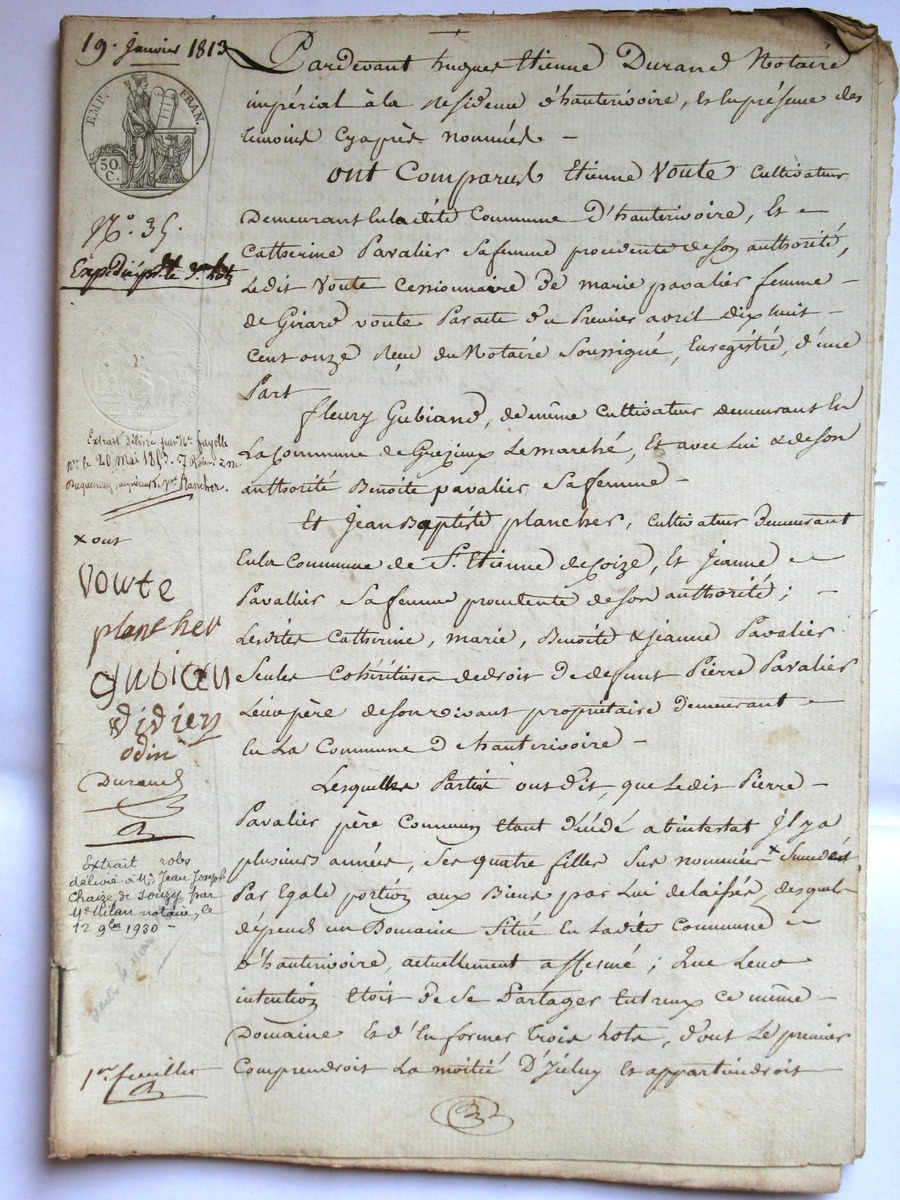 19. Janvier 1813
EMP. FRAN.
50.
C.
N.º 35.
Extrait délivré par Mᵉ fayolle
Nʳᵉ le 20 Mai 1853. 
pʳ Plancher.
x ont
Voute
plancher
gubian
didier
odin
Durand
Extrait robs
délivré à Mʳ Jean Joseph
Chaize de Souzy par
Mᵉ Milan notaire, le
12 9bre 1930 -
1er feuillet
Pardevant hugues Etienne Durand Notaire
impérial à la Residence d'hauterivoire, et en présence des
temoins Cyaprès nommés -
Ont Comparus Etienne Voute Cultivateur
Demeurant en ladite Commune D'hauterivoire, Et -
Catherine Pavalier Sa femme procedente de Son authorité,
Ledit Voute Cessionnaire de marie pavalier femme -
de Girard voute Par acte du Premier avril dix huit -
Cent onze Reçu du Notaire Soussigné, Enregistré, d'une
Part
fleury Gubiand, de même Cultivateur demeurant En
La Commune de Grézieux Le marché, Et avec Lui & de Son
authorité Benoite pavalier Sa femme -
Et Jean Baptiste plancher, Cultivateur Demeurant
En la Commune de St. Etienne de Coize, Et Jeanne -
Pavallier Sa femme procedente de Son authorité ; -
Lesdites Catherine, marie, Benoite & jeanne Pavalier
Seules Cohéritieres de droit de defunt Pierre Pavalier
Leur père de Son vivant propriétaire Demeurant -
En La Commune d'hauterivoire -
Lesquelles Parties ont dit, que Ledit Pierre -
Pavalier père Commun Etant décédé abintestat Il y a
plusieurs années, Ses quatre filles Sus nommées x Succédés
Par Egale portion aux Biens par Lui délaissés, desquels
dépend un Domaine Situé En Ladite Commune -
d'hauterivoire, actuellement affermé ; Que Leur
intention Etoit de Se Partager Entreux ce même -
Domaine Et d'En former trois Lots, dont Le premier
Comprendroit La moitié D'Icelui Et appartiendroit